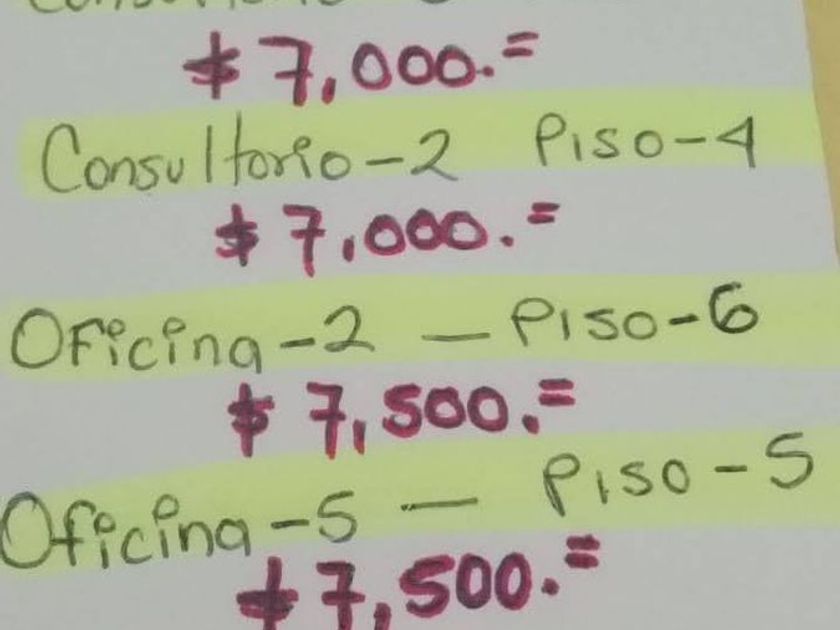 $ 7,000.=
Consultorio-2 Piso-4
$ 7,000.=
Oficina-2 — Piso-6
$ 7,500.=
Oficina-5 — Piso-5
$ 7,500.=